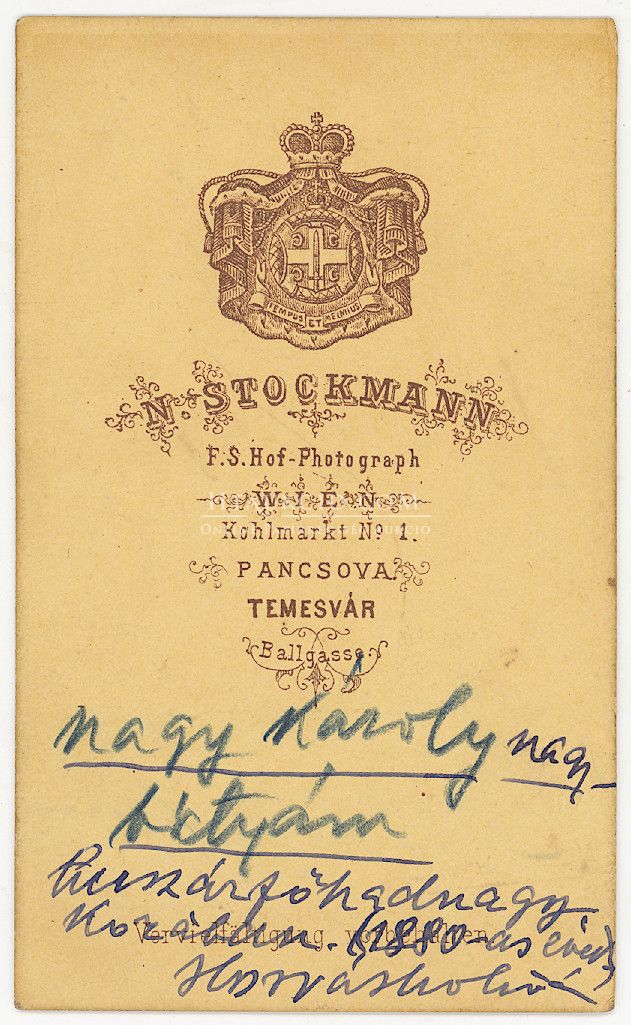 TEMPUS ET MEUM JUS
N. STOCKMANN
F.S. Hof-Photograph
WIEN
Kohlmarkt No 1.
PANCSOVA.
TEMESVÁR
Ballgasse.
Nagy Károly nagy-
bátyám
huszárfőhadnagy
korában. (1880-as évek)
Vervielfältigung vorbehalten.